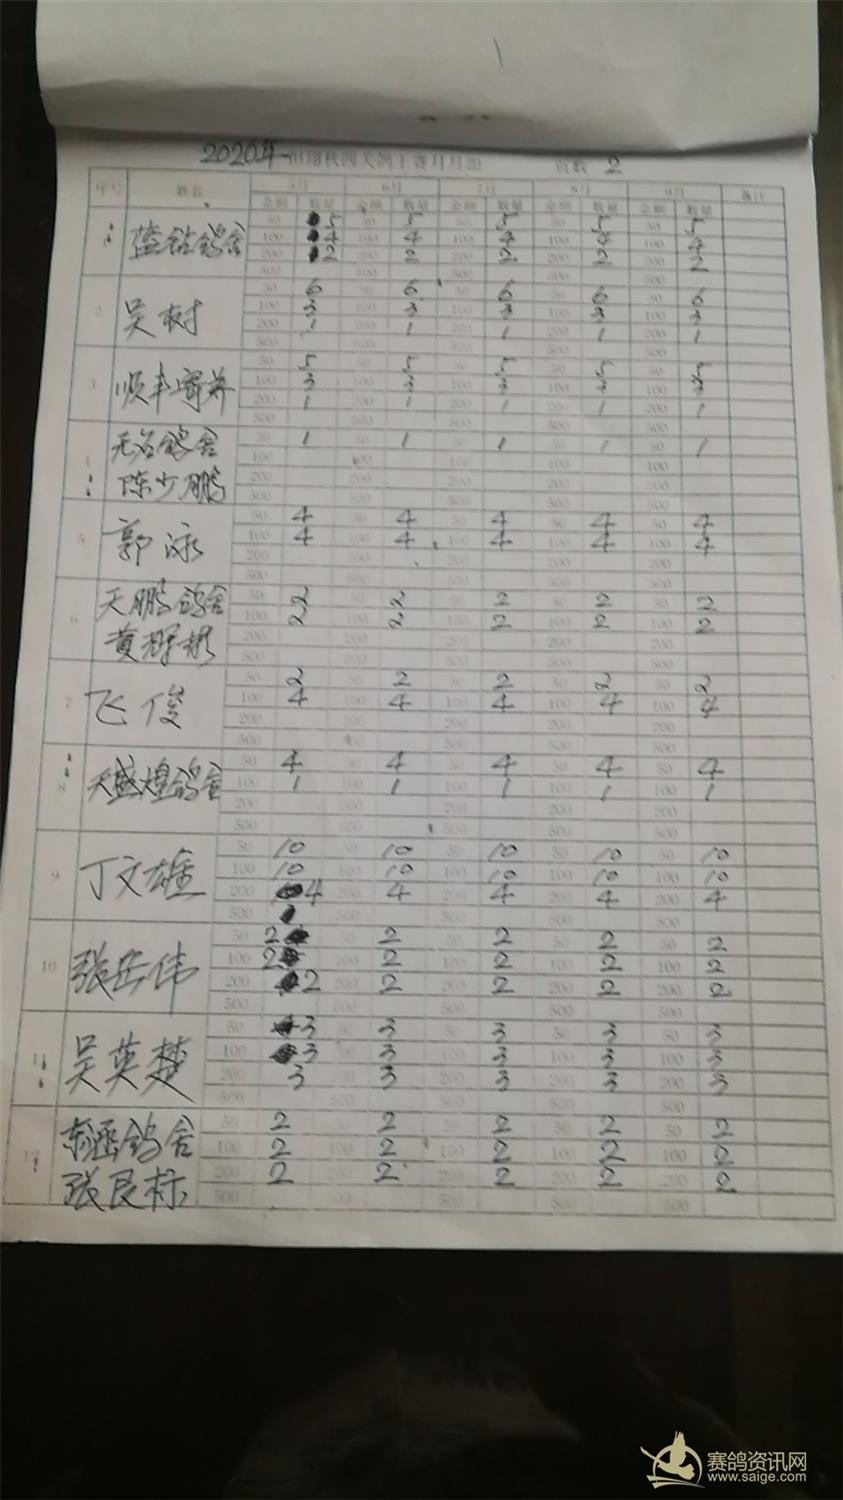 2020年 恒翔秋四关鸽王赛月月加 页数 2
序号 姓名 5月 6月 7月 8月 9月 备注
金额 数量 金额 数量 金额 数量 金额 数量 金额 数量
50 5 50 5 50 5 50 5 50 5
鸽舍 100 4 100 4 100 4 100 4 100 4
200 2 200 2 200 2 200 2 200 2
500 500 500 500 500
50 6 50 6 50 6 50 6 50 6
2 吴树 100 3 100 3 100 3 100 3 100 3
200 1 200 1 200 1 200 1 200 1
500 500 500 500 500
50 5 50 5 50 5 50 5 50 5
3 顺丰寄养 100 3 100 3 100 3 100 3 100 3
200 1 200 1 200 1 200 1 200 1
500 500 500 500 500
无名鸽舍 50 1 50 1 50 1 50 1 50 1
4 100 100 100 100 100
陈少鹏 200 200 200 200 200
500 500 500 500 500
50 4 50 4 50 4 50 4 50 4
5 郭泳 100 4 100 4 100 4 100 4 100 4
200 200 200 200 200
500 500 500 500 500
天鹏鸽舍 50 2 50 2 50 2 50 2 50 2
6 100 2 100 2 100 2 100 2 100 2
黄辉彬 200 200 200 200 200
500 500 500 500 500
50 2 50 2 50 2 50 2 50 2
7 飞俊 100 4 100 4 100 4 100 4 100 4
200 200 200 200 200
500 500 500 500 500
50 4 50 4 50 4 50 4 50 4
8 天盛煌鸽舍 100 1 100 1 100 1 100 1 100 1
200 200 200 200 200
500 500 500 500 500
50 10 50 10 50 10 50 10 50 10
9 丁文雄 100 10 100 10 100 10 100 10 100 10
200 4 200 4 200 4 200 4 200 4
500 500 500 500 500
50 2 50 2 50 2 50 2 50 2
10 张岳伟 100 2 100 2 100 2 100 2 100 2
200 2 200 2 200 2 200 2 200 2
500 500 500 500 500
50 3 50 3 50 3 50 3 50 3
11 吴英楚 100 3 100 3 100 3 100 3 100 3
200 3 200 3 200 3 200 3 200 3
500 500 500 500 500
鸽舍 50 2 50 2 50 2 50 2 50 2
12 100 2 100 2 100 2 100 2 100 2
张良标 200 2 200 2 200 2 200 2 200 2
500 500 500 500 500
赛鸽资讯网
www.saige.com